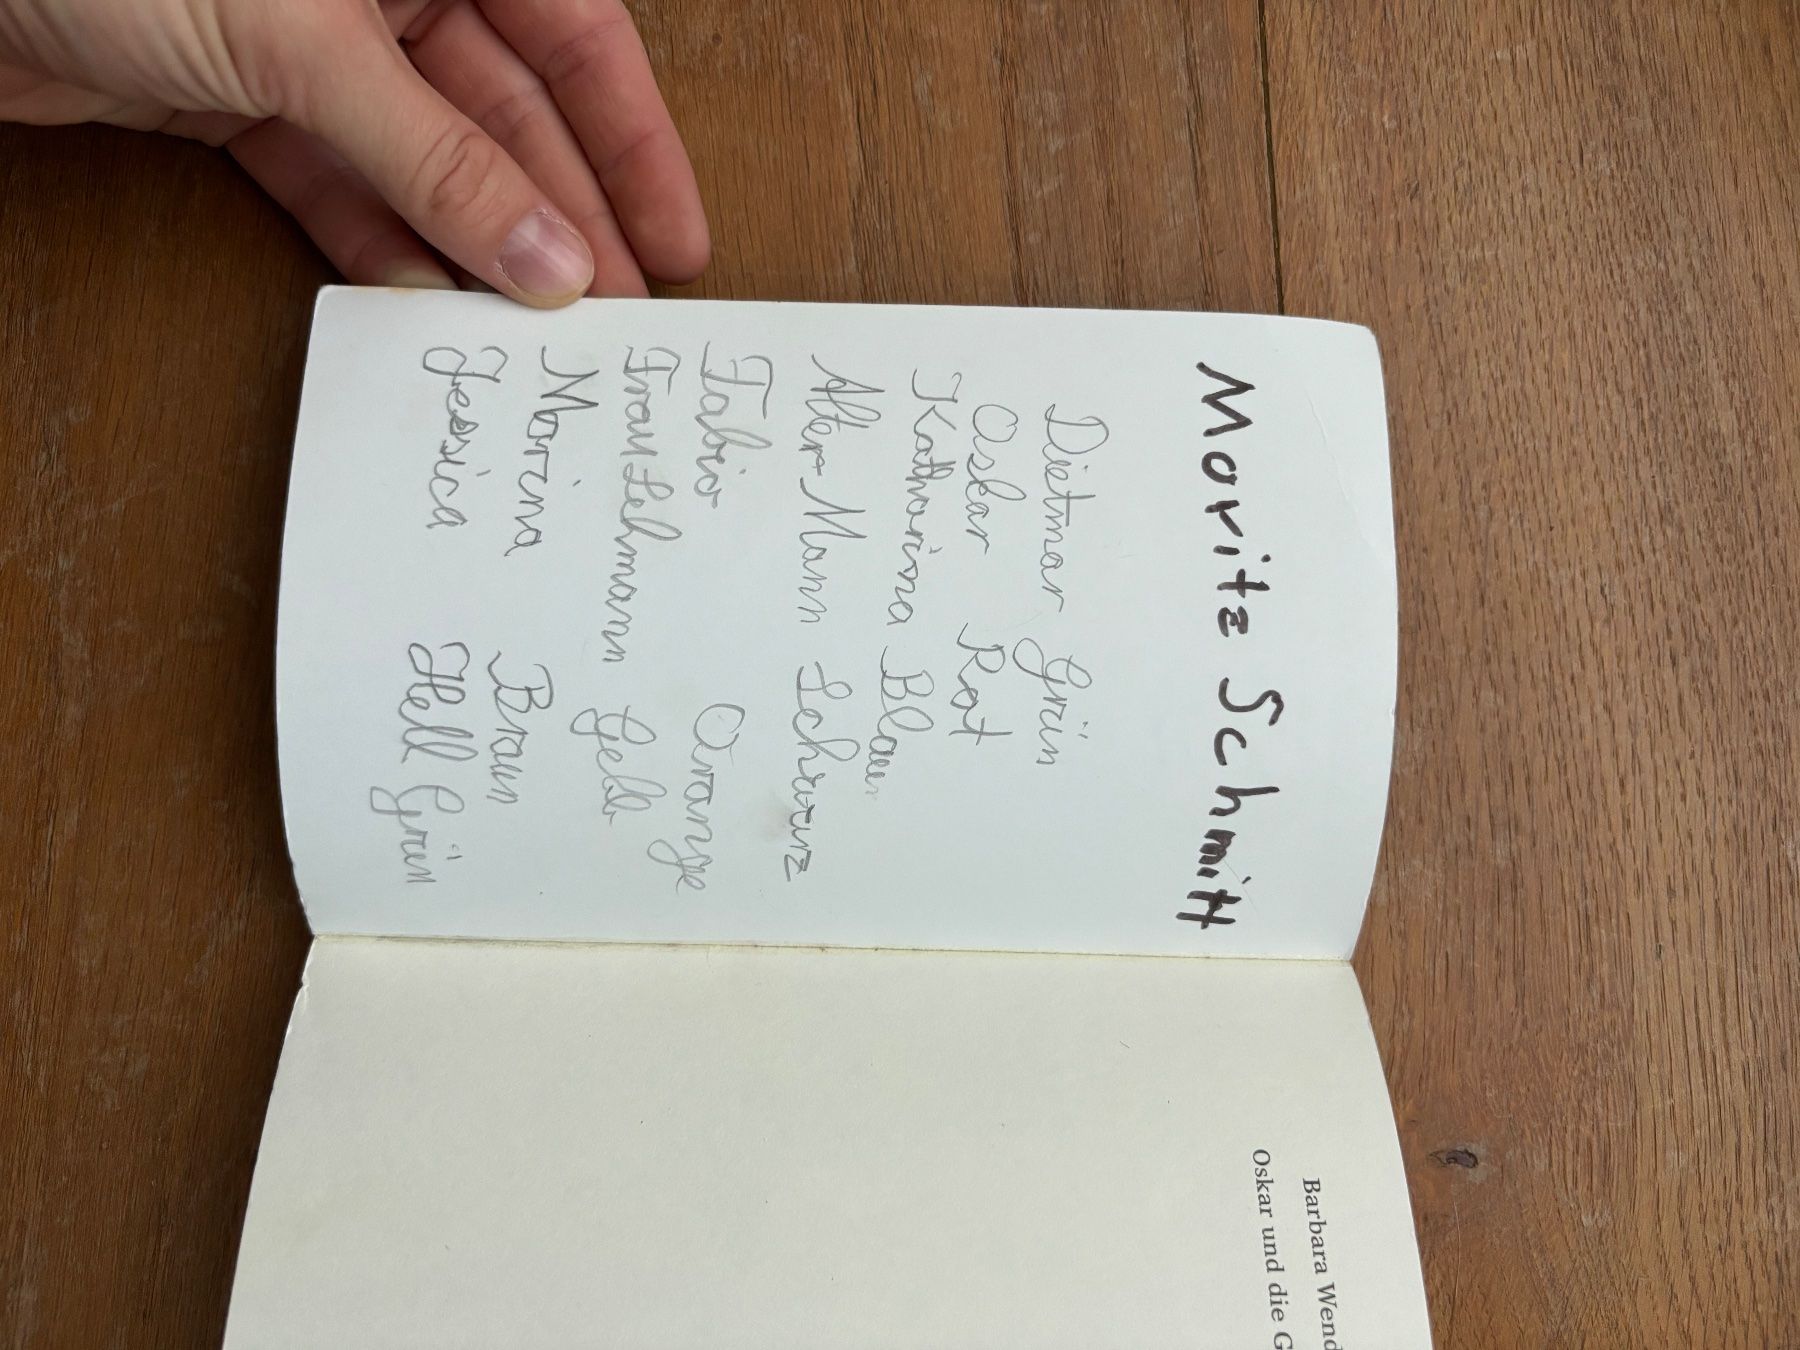 Moritz Schmitt
Dietmar Grün
Oskar Rot
Katharina Blau
Alter Mann Schwarz
Fabio Orange
Frau Lehmann Gelb
Marina Braun
Jessica Hell Grün
Barbara Wend
Oskar und die G